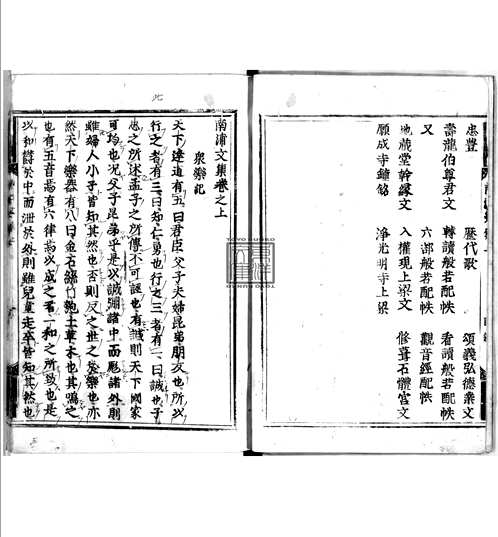 忠豐 歷代歌 頌義弘德業文
壽龍伯尊君文 轉讀般若配帙 看讀般若配帙
又 六部般若配帙 觀音經配帙
地藏堂幹緣文 入權現上梁文 修葺石體宮文
願成寺鐘銘 淨光明寺上梁
南浦文集卷之上
衆樂記
天下達道有五曰君臣父子夫婦昆弟朋友也所以
行之者有三曰知仁勇也行之三者有一曰誠也子
思之所述孟子之所傳不可誣也有誠則天下國家
可均也况父子昆弟乎是以誠瀰諸中而應諸外則
雖婦人小子皆知其然也否則反之世之爲樂也亦
然天下樂器有八曰金石絲竹匏土革木也其鳴之
也有五音焉有六律焉以成之者一和之所致也是
以和蘊於中而泄於外則雖兒童走卒皆知其然也